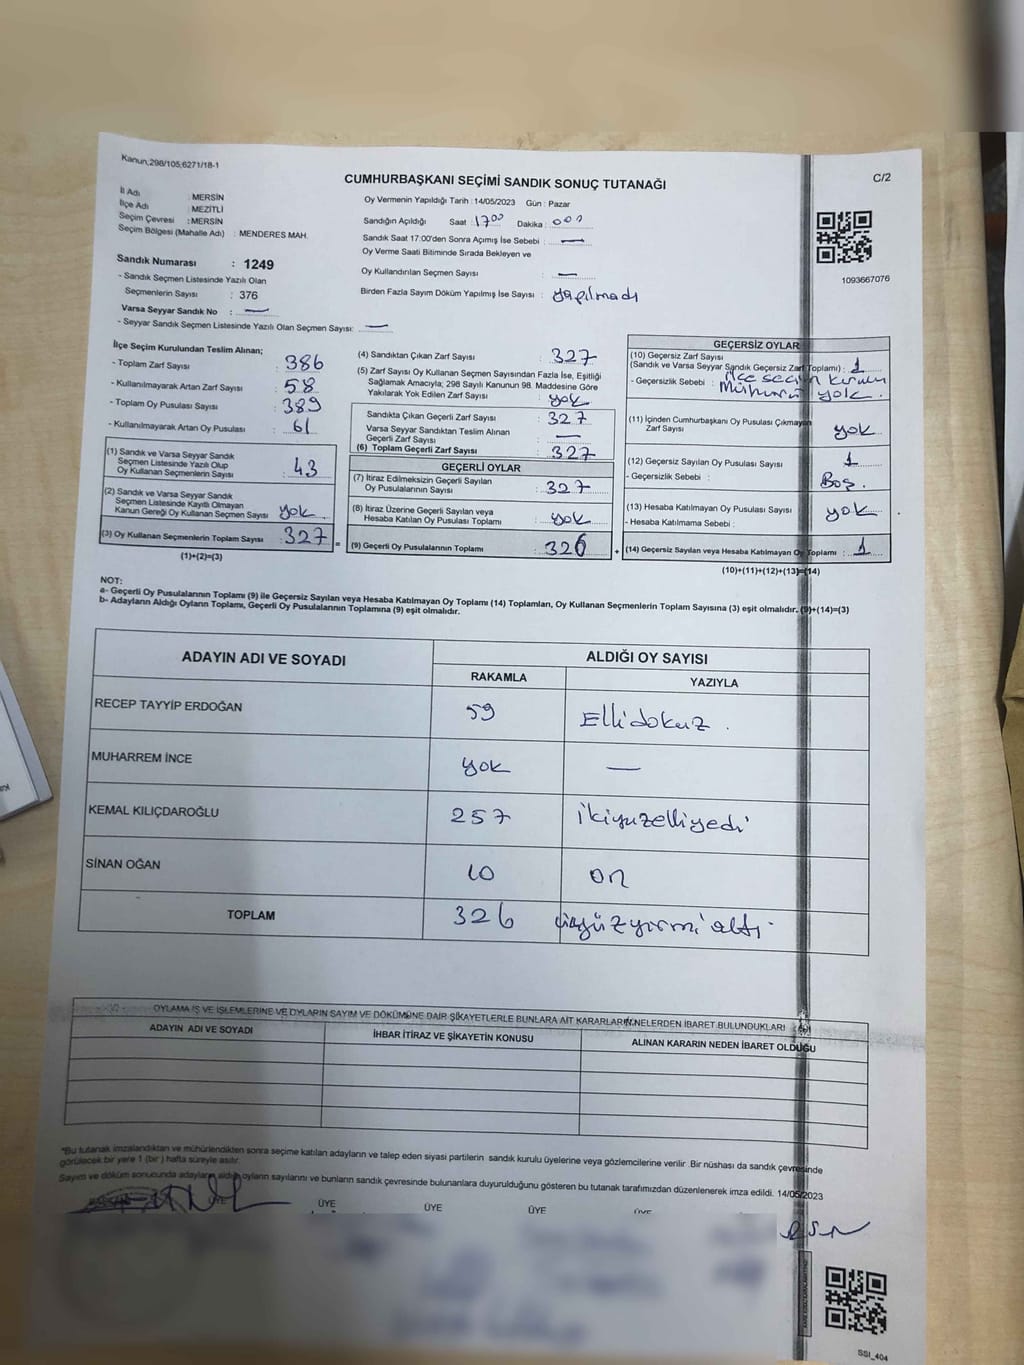 Kanun;298/105;6271/18-1
CUMHURBAŞKANI SEÇİMİ SANDIK SONUÇ TUTANAĞI
C/2
İl Adı : MERSİN
İlçe Adı : MEZİTLİ
Seçim Çevresi : MERSİN
Seçim Bölgesi (Mahalle Adı) : MENDERES MAH.
Sandık Numarası : 1249
- Sandık Seçmen Listesinde Yazılı Olan
Seçmenlerin Sayısı : 376
Varsa Seyyar Sandık No : —
- Seyyar Sandık Seçmen Listesinde Yazılı Olan Seçmen Sayısı: —
Oy Vermenin Yapıldığı Tarih : 14/05/2023 Gün : Pazar
Sandığın Açıldığı Saat : 17 00 Dakika :
Sandık Saat 17:00'den Sonra Açımış İse Sebebi : —
Oy Verme Saati Bitiminde Sırada Bekleyen ve
Oy Kullandırılan Seçmen Sayısı : —
Birden Fazla Sayım Döküm Yapılmış İse Sayısı : yapılmadı
1093667076
İlçe Seçim Kurulundan Teslim Alınan;
- Toplam Zarf Sayısı : 386
- Kullanılmayarak Artan Zarf Sayısı : 58
- Toplam Oy Pusulası Sayısı : 389
- Kullanılmayarak Artan Oy Pusulası : 61
(1) Sandık ve Varsa Seyyar Sandık
Seçmen Listesinde Yazılı Olup
Oy Kullanan Seçmenlerin Sayısı : 43
(2) Sandık ve Varsa Seyyar Sandık
Seçmen Listesinde Kayıtlı Olmayan
Kanun Gereği Oy Kullanan Seçmen Sayısı : yok
(3) Oy Kullanan Seçmenlerin Toplam Sayısı : 327
(1)+(2)=(3)
=
(4) Sandıktan Çıkan Zarf Sayısı : 327
(5) Zarf Sayısı Oy Kullanan Seçmen Sayısından Fazla İse, Eşitliği
Sağlamak Amacıyla; 298 Sayılı Kanunun 98. Maddesine Göre
Yakılarak Yok Edilen Zarf Sayısı : yok
Sandıkta Çıkan Geçerli Zarf Sayısı : 327
Varsa Seyyar Sandıktan Teslim Alınan
Geçerli Zarf Sayısı : —
(6) Toplam Geçerli Zarf Sayısı : 327
GEÇERLİ OYLAR
(7) İtiraz Edilmeksizin Geçerli Sayılan
Oy Pusulalarının Sayısı : 327
(8) İtiraz Üzerine Geçerli Sayılan veya
Hesaba Katılan Oy Pusulası Toplamı : yok
(9) Geçerli Oy Pusulalarının Toplamı : 326
+
GEÇERSİZ OYLAR
(10) Geçersiz Zarf Sayısı
(Sandık ve Varsa Seyyar Sandık Geçersiz Zarf Toplamı) : 1
- Geçersizlik Sebebi : ilçe seçim kurulu
Mührü yok.
(11) İçinden Cumhurbaşkanı Oy Pusulası Çıkmayan
Zarf Sayısı : yok
(12) Geçersiz Sayılan Oy Pusulası Sayısı : 1
- Geçersizlik Sebebi : Boş.
(13) Hesaba Katılmayan Oy Pusulası Sayısı : yok
- Hesaba Katılmama Sebebi :
(14) Geçersiz Sayılan veya Hesaba Katılmayan Oy Toplamı : 1
(10)+(11)+(12)+(13)=(14)
NOT:
a- Geçerli Oy Pusulasının Toplamı (9) ile Geçersiz Sayılan veya Hesaba Katılmayan Oy Toplamı (14) Toplamları, Oy Kullanan Seçmenlerin Toplam Sayısına (3) eşit olmalıdır. (9)+(14)=(3)
b- Adayların Aldığı Oyların Toplamı, Geçerli Oy Pusulalarının Toplamına (9) eşit olmalıdır.
ADAYIN ADI VE SOYADI
ALDIĞI OY SAYISI
RAKAMLA YAZIYLA
RECEP TAYYİP ERDOĞAN 59 Ellidokuz.
MUHARREM İNCE yok —
KEMAL KILIÇDAROĞLU 257 ikiyüzelliyedi
SİNAN OĞAN 10 on
TOPLAM 326 üçyüzyirmialtı
OYLAMA İŞ VE İŞLEMLERİNE VE OYLARIN SAYIM VE DÖKÜMÜNE DAİR ŞİKAYETLERLE BUNLARA AİT KARARLARIN NELERDEN İBARET BULUNDUKLARI
ADAYIN ADI VE SOYADI
İHBAR İTİRAZ VE ŞİKAYETİN KONUSU
ALINAN KARARIN NEDEN İBARET OLDUĞU
*Bu tutanak imzalandıktan ve mühürlendikten sonra seçime katılan adayların ve talep eden siyasi partilerin sandık kurulu üyelerine veya gözlemcilerine verilir. Bir nüshası da sandık çevresinde
görülecek bir yere 1 (bir) hafta süreyle asılır.
Sayım ve döküm sonucunda adayların aldığı oyların sayılarını ve bunların sandık çevresinde bulunanlara duyurulduğunu gösteren bu tutanak tarafımızdan düzenlenerek imza edildi. 14/05/2023
ÜYE ÜYE ÜYE ÜYE ÜYE
SSI_404